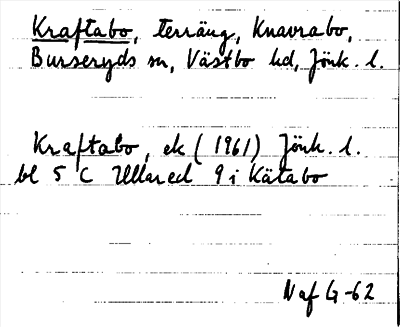 Kraftabo, terräng, Knavrabo,
Burseryds sn, Västbo hd, Jönk. l.
Kraftabo, ek (1961) Jönk. l.
bl 5 C Ullared 9 i Kätabo
Naf G-62